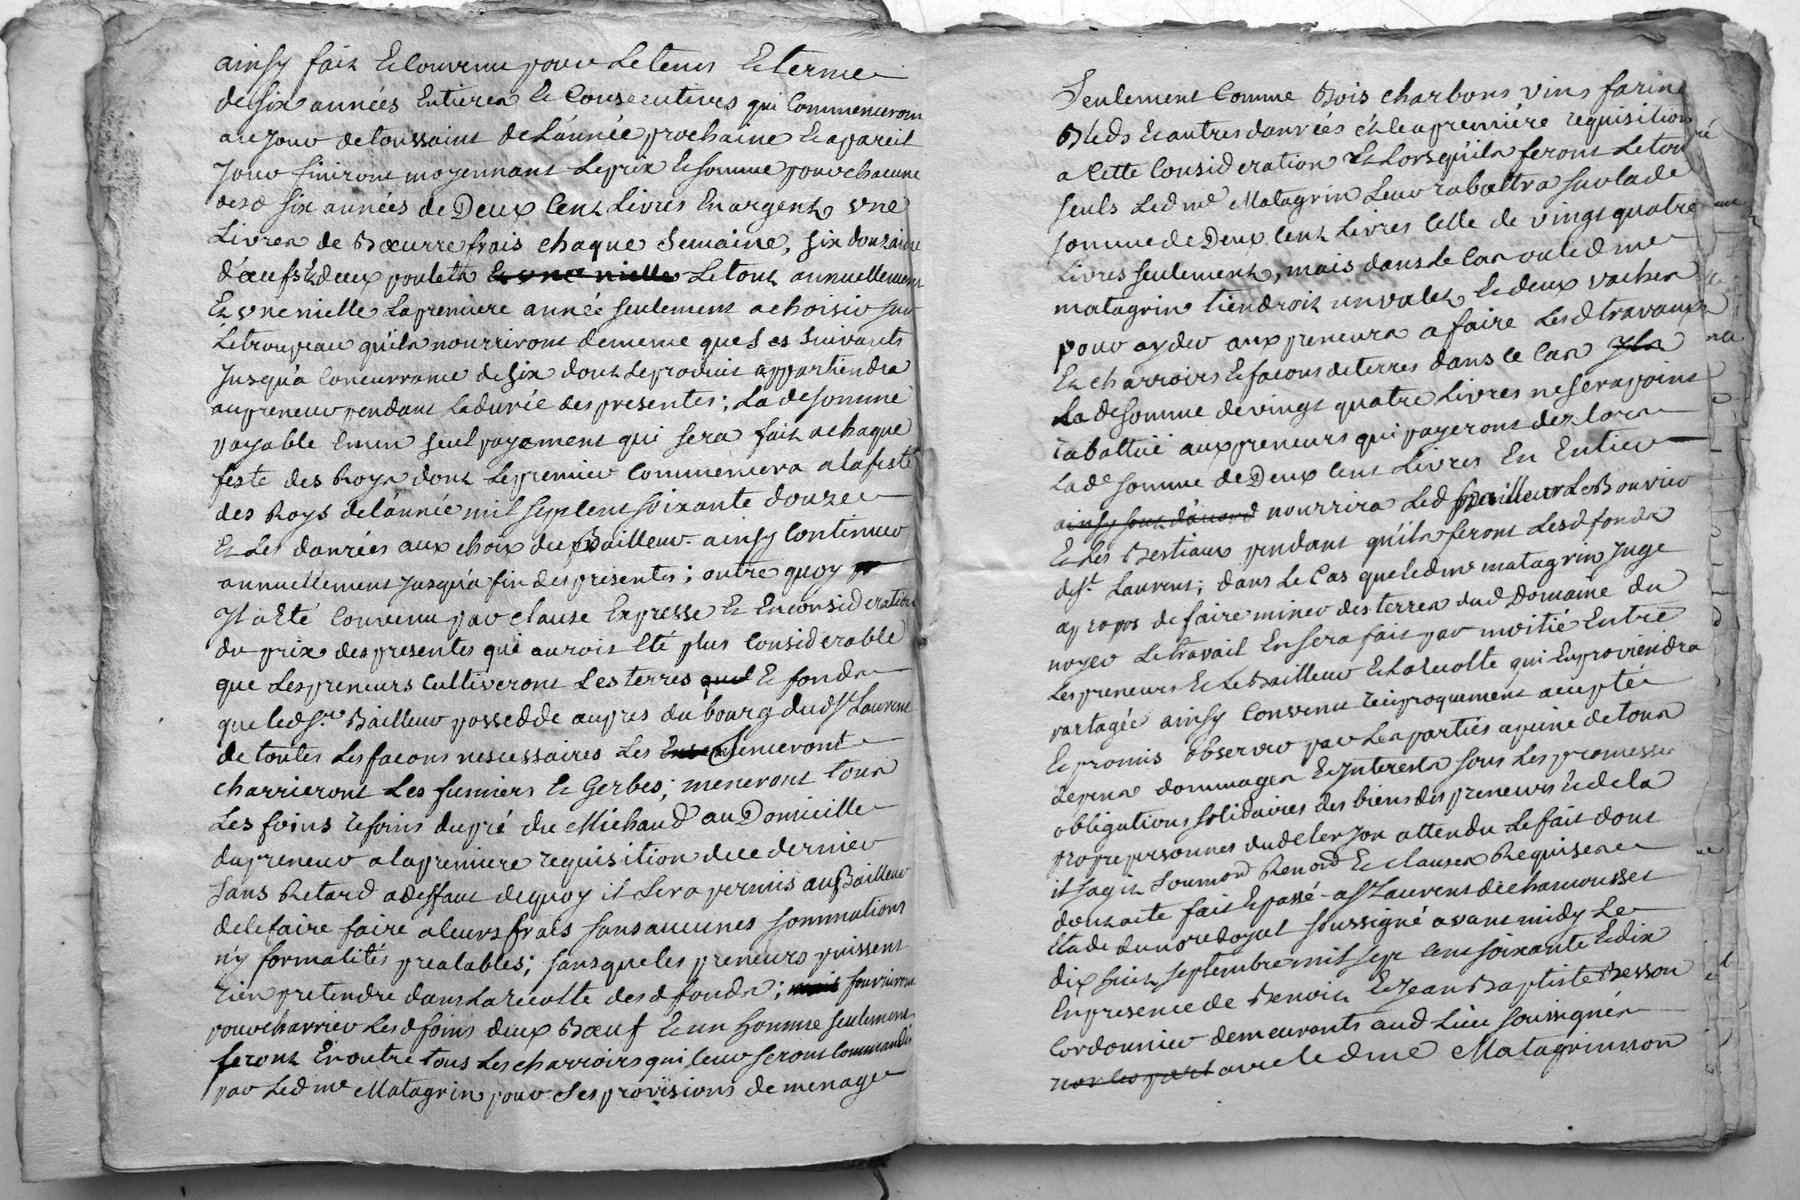 ainsy fait et convenu pour le tems et terme
de six années entieres et consecutives qui commenceront
au jour de toussaint de l'année prochaine et a pareil
jour finiront moyennant le prix et somme pour chacune
desd six années de Deux cent livres en argent, une
Livres de Bœurre frais chaque semaine, six douzaine
d'œufs et deux poulets et une nielle le tout annuellement
Et une nielle la premiere année seulement a choisir sur
le troupeau qu'ils nourriront de meme que les suivants
jusqu'a concurrance de six dont le produit appartiendra
au preneur pendant la durée des presentes; la de somme
payable en un seul payement qui sera fait a chaque
feste des Roys dont le premier commencera a la feste
des Roys de l'année mil sept cent soixante douze
Et les danrées aux choix du Bailleur. ainsy continuer
annuellement jusqu'a fin des presentes; outre quoy
Il a eté convenu par clause expresse et en consideration
du prix des presentes qui auroit eté plus considerable
que les preneurs cultiveront les terres et fonds
que led Sr Bailleur possedde aupres du bourg dud St Laurent
de toutes les facons nescessaires les semeront
charrieront les fumiers et gerbes; meneront tous
Les foins refoins du pré du Michaud au Domicille
du preneur a la premiere requisition de ce dernier
sans Retard a deffaut de quoy il sera permis au Bailleur
de le faire faire a leurs frais sans aucunes sommations
n'y formalités prealables; sans que les preneurs puissent
rien pretendre dans la recolte desd fonds; mais fourniront
pour charrier lesd foins deux Bœuf et un homme seulement
feront en outre tous les charroirs qui leur seront commandés
par led me Matagrin pour ses provisions de menage
Seulement comme Bois charbons vins farine
Bleds et autres danrées et la premiére requisition
a cette consideration et lorsqu'ils feront le tout
seuls led me Matagrin leur rabattra sur lade
somme de Deux cent livres celle de vingt quatre
Livres seulement, mais dans le cas ou led me
matagrin tiendroit un valet et deux vaches
pour ayder aux preneurs a faire lesd travaux
et charroirs et facons de terres dans ce cas ils
La de somme de vingt quatre livres ne sera point
rabattüe aux preneurs qui payeront dez lors
la de somme de Deux cent livres en entier
ainsy sont d'acord nourrira led Bailleur le Bouvier
et les Bestiaux pendant qu'ils feront lesd fonds
de St Laurent; dans le cas que led me matagrin juge
apropos de faire miner des terres dud Domaine du
noyer le travail en sera fait par moitié entre
les preneurs et le Bailleur et la recolte qui en proviendra
partagée ainsy convenu reciproquement accepté
et promis observer par les parties a peine de tous
depens dommages et interests sous les promesses
obligations solidaires des biens des preneurs et de la
propre personnes dud clerjon attendu le fait dont
il sagit soumond Renond et clauses Requises
dont acte fait et passé a St Laurent de chamousset
étude du nore Royal soussigné avant midy le
dix huit septembre mil sept cent soixante et dix
En presence de Benoit et Jean Baptiste Besson
Cordonnier demeurants aud lieu soussignés
avec led me Matagrin non